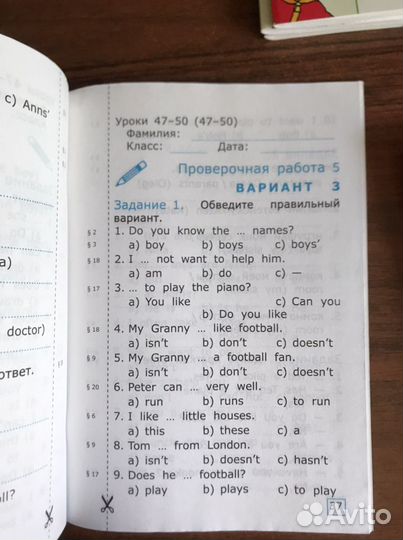 c) Anns'
a)
doctor)
ответ.
all?
Уроки 47–50 (47–50)
Фамилия:
Класс: Дата:
Проверочная работа 5
ВАРИАНТ 3
Задание 1. Обведите правильный
вариант.
§ 2 1. Do you know the ... names?
§ 3 a) boy b) boys c) boys'
§ 18 2. I ... not want to help him.
a) am b) do c) —
§ 17 3. ... to play the piano?
a) You like c) Can you
b) Do you like
§ 18 4. My Granny ... like football.
a) isn't b) don't c) doesn't
§ 9 5. My Granny ... a football fan.
a) isn't b) don't c) doesn't
§ 20 6. Peter can ... very well.
a) run b) runs c) to run
§ 6 7. I like ... little houses.
a) this b) these c) a
§ 9 8. Tom ... from London.
a) isn't b) doesn't c) hasn't
§ 17 9. Does he ... football?
a) play b) plays c) to play
37
Avito